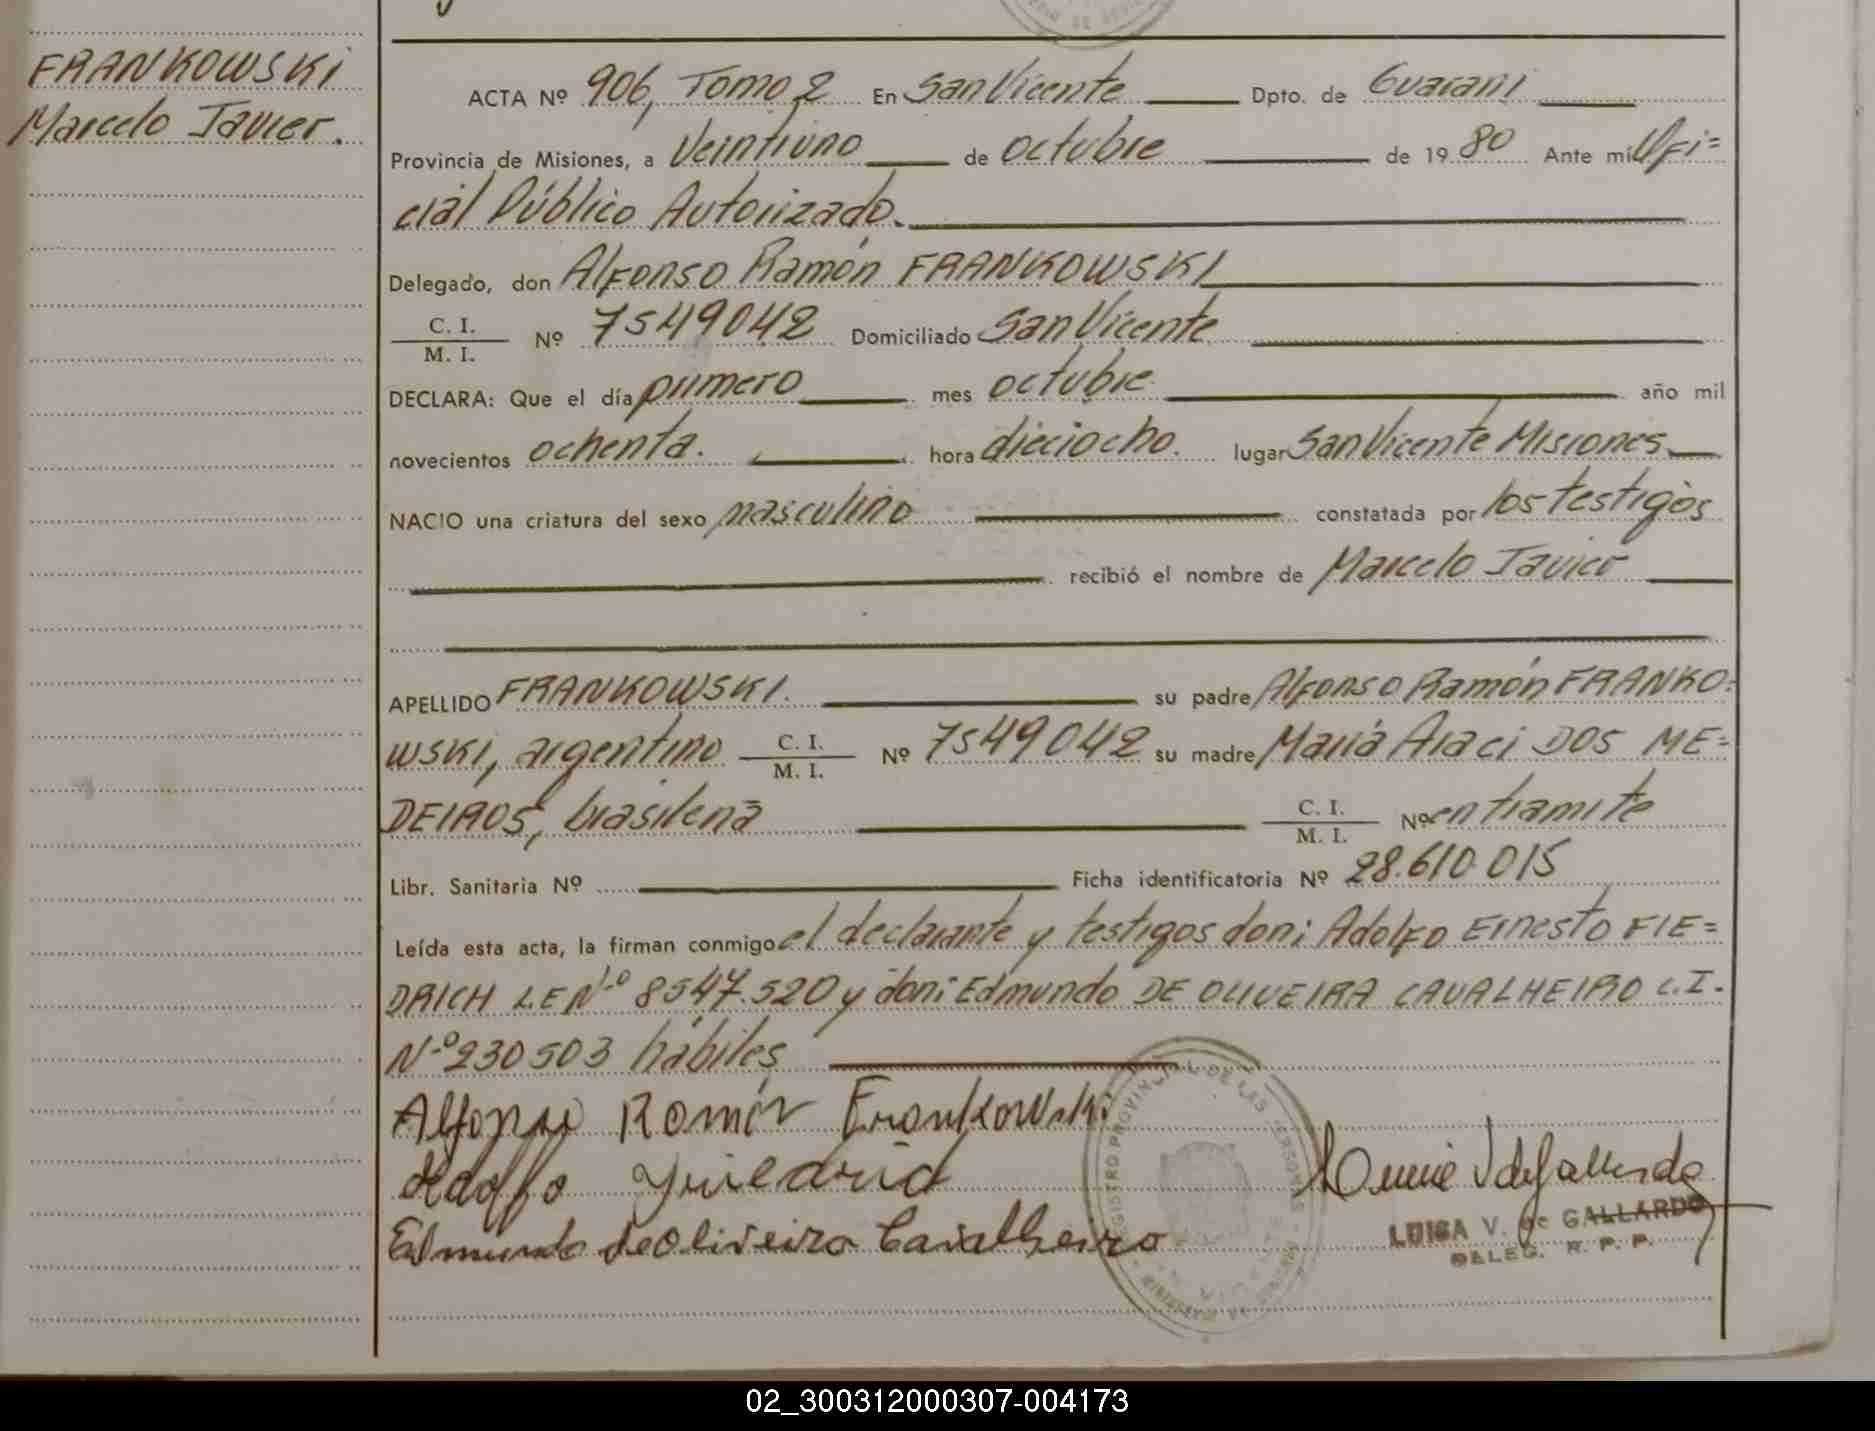 FRANKOWSKI
Marcelo Javier.
ACTA Nº 906, Tomo 2 En San Vicente Dpto. de Guaraní
Provincia de Misiones, a Veintiuno de octubre de 1980 Ante mí Ofi=
cial Público Autorizado.
Delegado, don Alfonso Ramón FRANKOWSKI
C. I.
M. I. Nº 7549042 Domiciliado San Vicente
DECLARA: Que el día primero mes octubre año mil
novecientos ochenta. hora dieciocho. lugar San Vicente Misiones
NACIO una criatura del sexo masculino constatada por los testigos
recibió el nombre de Marcelo Javier
APELLIDO FRANKOWSKI. su padre Alfonso Ramón FRANKO=
WSKI, argentino C. I. M. I. Nº 7549042 su madre María Araci DOS ME=
DEIROS, brasileña C. I. M. I. Nº en tramite
Libr. Sanitaria Nº Ficha identificatoria Nº 28.610.015
Leída esta acta, la firman conmigo el declarante y testigos don: Adolfo Ernesto FIE=
DRICH LE Nº 8547.520 y don: Edmundo DE OLIVEIRA CAVALHEIRO C.I.
Nº 230503 hábiles
Alfonso Ramón Frankowski
Adolfo
Edmundo de Oliveira Cavalheiro
REGISTRO PROVINCIAL DE LAS PERSONAS
LUISA V. de GALLARDO
DELEG. R. P. P.
02_300312000307-004173